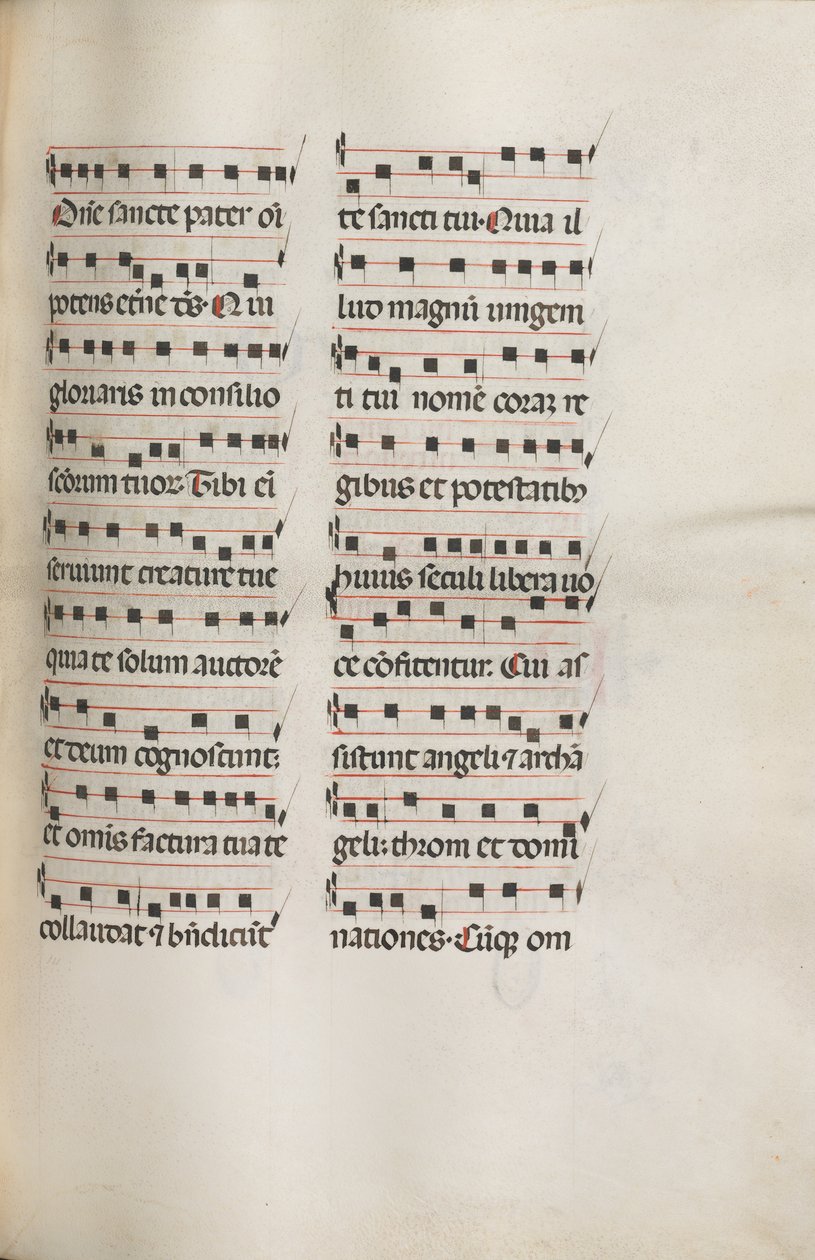 Dñe sancte pater oī
potens et̄ne ds̄. Qui
gloriaris in consilio
sc̄orum tuor: Tibi eī
seruiunt creature tue
quia te solum auctorē
et deum cognoscunt:
et om̄is factura tua te
collaudat ⁊ bn̄dicūt
te sancti tui. Quia il
lud magnū unigeni
ti tui nomē coraȝ re
gibus et potestatibꝫ
huius seculi libera uo
ce cōfitentur: Cui as
sistunt angeli ⁊ archā
geli: throni et domi
nationes. Cūqꝫ om